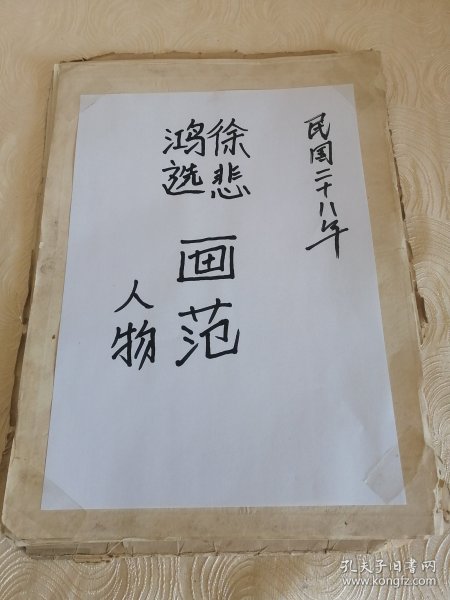 民国二十八年
徐悲
鸿选
画范
人物
孔夫子旧书网
www.kongfz.com